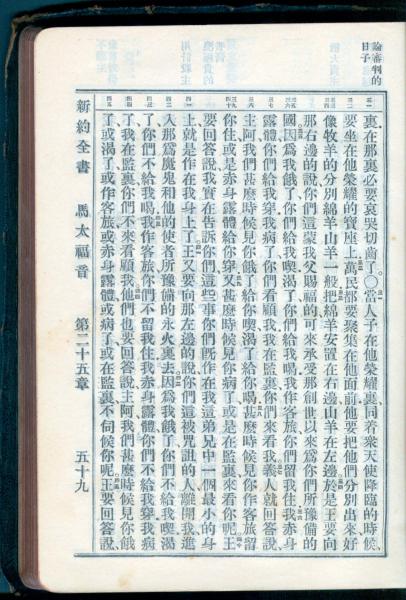 論審判的日子
裏在那裏必要哀哭切齒了○當人子在他榮耀裏同着衆天使降臨的時候
要坐在他榮耀的寶座上萬民都要聚集在他面前他要把他們分別出來好
像牧羊的分別綿羊山羊一般把綿羊安置在右邊山羊在左邊於是王要向
那右邊的說你們這蒙我父賜福的可來承受那創世以來爲你們所豫備的
國因爲我餓了你們給我喫渴了你們給我喝我作客旅你們留我住我赤身
露體你們給我穿我病了你們看顧我我在監裏你們來看我義人就回答說
主阿我們甚麽時候見你餓了給你喫渴了給你喝甚麽時候見你作客旅留
你住或是赤身露體給你穿又甚麽時候見你病了或是在監裏來看你呢王
要回答說我實在告訴你們這些事你們旣作在我這弟兄中一個最小的身
上就是作在我身上了王又要向那左邊的說你們這被咒詛的人離開我進
入那爲魔鬼和他的使者所豫備的永火裏去因爲我餓了你們不給我喫渴
了你們不給我喝我作客旅你們不留我住我赤身露體你們不給我穿我病
了我在監裏你們不來看顧我他們也要回答說主阿我們甚麽時候見你餓
了或渴了或作客旅或赤身露體或病了或在監裏不伺候你呢王要回答說
新約全書 馬太福音 第二十五章 五十九